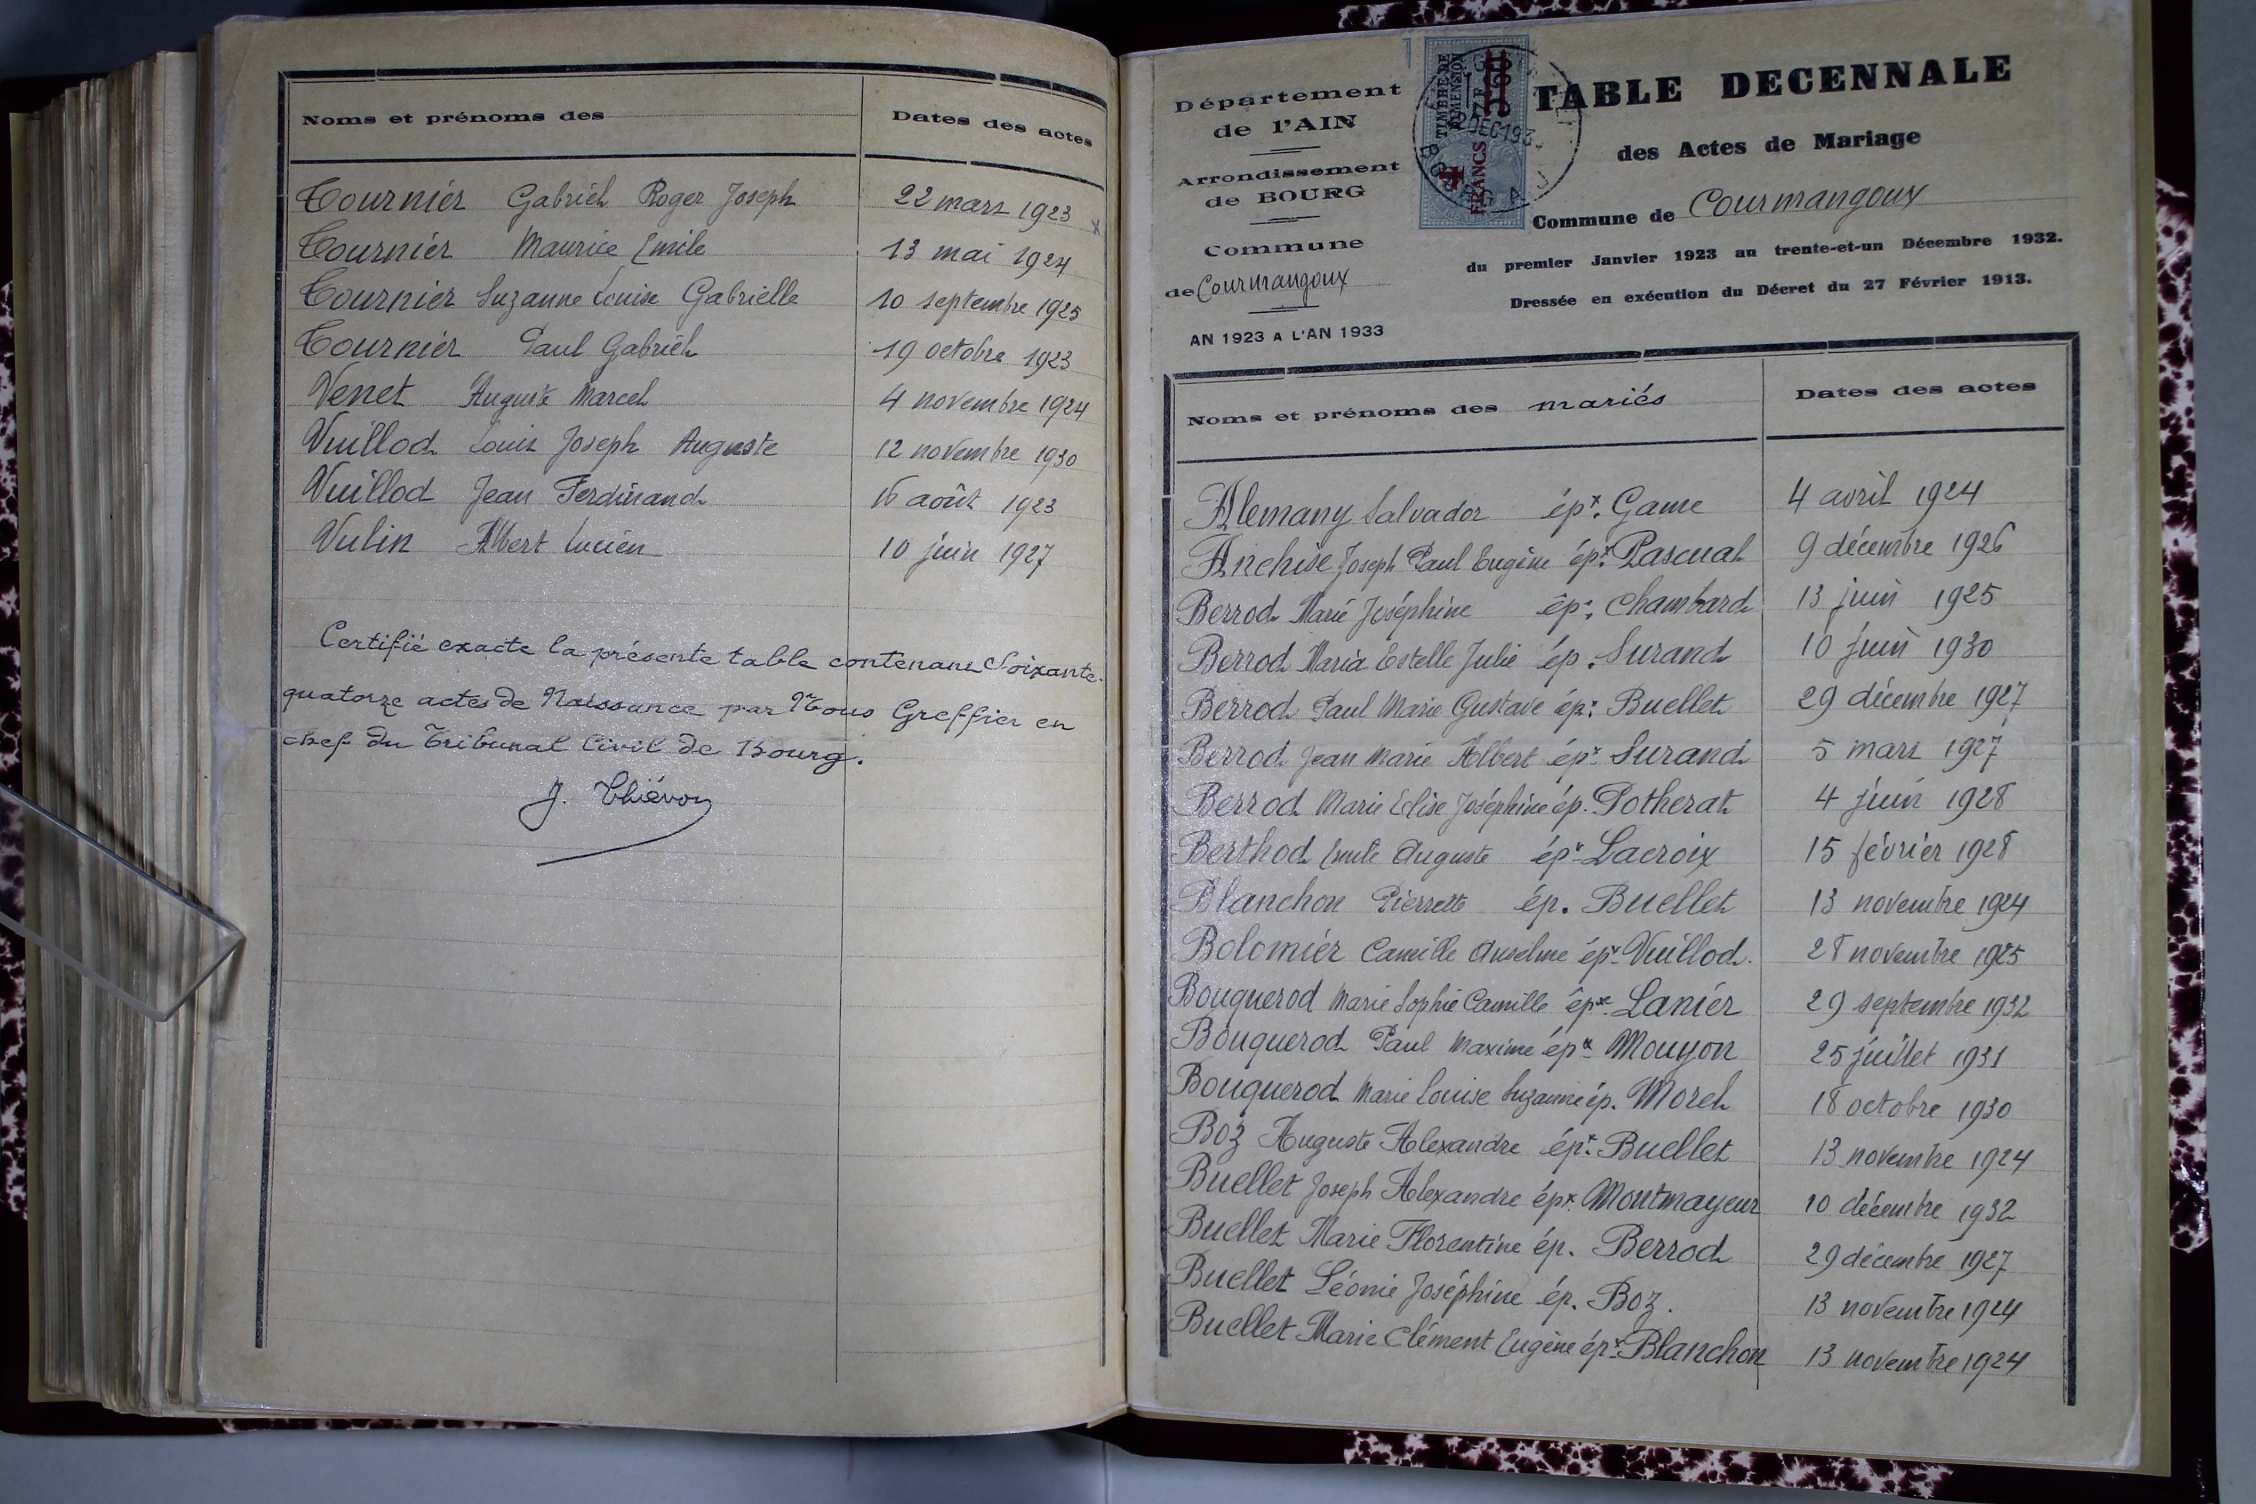 Noms et prénoms des
Dates des actes
Tournier Gabriel Roger Joseph 22 mars 1923 x
Tournier Maurice Emile 13 mai 1924
Tournier Suzanne Louise Gabrielle 10 septembre 1925
Tournier Paul Gabriel 19 octobre 1923
Venet Auguste Marcel 4 novembre 1924
Vuillod Louis Joseph Auguste 12 novembre 1930
Vuillod Jean Ferdinand 16 août 1923
Vulin Albert Lucien 10 juin 1927
Certifié exacte la présente table contenant Soixante-
quatorze actes de Naissance par Nous Greffier en
chef du Tribunal Civil de Bourg.
J. Thiévon
Département
de l'AIN
Arrondissement
de BOURG
Commune
de Courmangoux
AN 1923 A L'AN 1933
TIMBRE DE
DIMENSION
4
FRANCS
DEC 193
TABLE DECENNALE
des Actes de Mariage
Commune de Courmangoux
du premier Janvier 1923 au trente-et-un Décembre 1932.
Dressée en exécution du Décret du 27 Février 1913.
Noms et prénoms des mariés
Dates des actes
Alemany Salvador épx. Game 4 avril 1924
Anchise Joseph Paul Eugène épx. Pascual 9 décembre 1926
Berrod Marie Joséphine ép. Chambard 13 juin 1925
Berrod Maria Estelle Julie ép. Surand 10 juin 1930
Berrod Paul Marie Gustave épx. Buellet 29 décembre 1927
Berrod Jean Marie Albert épx. Surand 5 mars 1927
Berrod Marie Elise Joséphine ép. Potherat 4 juin 1928
Berthod Emile Auguste épx. Lacroix 15 février 1928
Blanchon Pierrette ép. Buellet 13 novembre 1924
Bolomier Camille Anselme épx. Vuillod. 28 novembre 1925
Bouquerod Marie Sophie Camille épse. Lanier 29 septembre 1932
Bouquerod Paul Maxime épx. Mouyon 25 juillet 1931
Bouquerod Marie Louise Suzanne ép. Morel 18 octobre 1930
Boz Auguste Alexandre épx. Buellet 13 novembre 1924
Buellet Joseph Alexandre épx. Montmayeur 10 décembre 1932
Buellet Marie Florentine ép. Berrod 29 décembre 1927
Buellet Léonie Joséphine ép. Boz. 13 novembre 1924
Buellet Marie Clément Eugène épx. Blanchon 13 novembre 1924